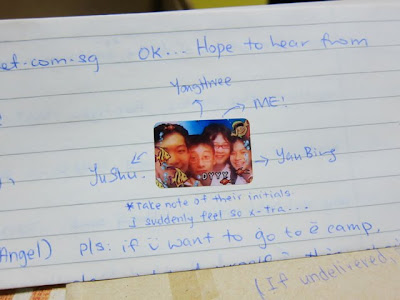 et.com.sg OK... Hope to hear from
YongHwee
ME!
YuShu
YanBing
DYYY
*Take note of their initials.
I suddenly feel so x-tra...
Angel) pls: if ü want to go to ë camp,
(If undelivered,